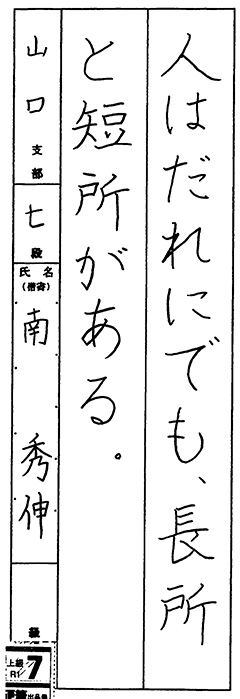 人はだれにでも、長所
と短所がある。
山口支部
七段
氏名
(楷書)
南 秀伸
級
上級
R1/7